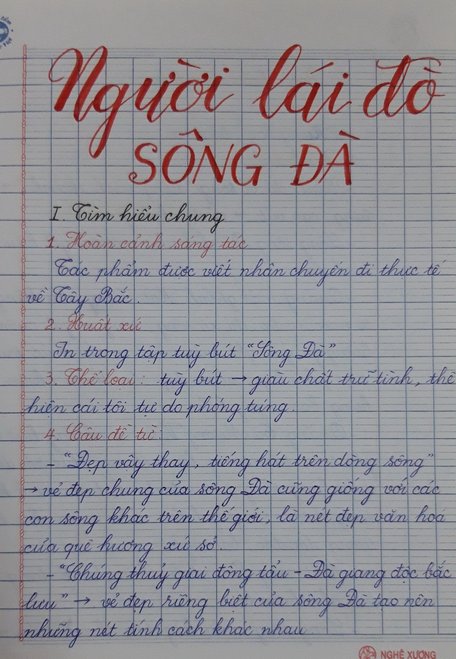 Người lái đò
SÔNG ĐÀ
I. Tìm hiểu chung
1. Hoàn cảnh sáng tác
Tác phẩm được viết nhân chuyến đi thực tế
về Tây Bắc.
2. Xuất xứ
In trong tập tuỳ bút "Sông Đà"
3. Thể loại: tuỳ bút → giàu chất trữ tình, thể
hiện cái tôi tự do phóng túng.
4. Câu đề từ:
- "Đẹp vậy thay, tiếng hát trên dòng sông"
→ vẻ đẹp chung của sông Đà cũng giống với các
con sông khác trên thế giới, là nét đẹp văn hoá
của quê hương xứ sở.
- "Chúng thuỷ giai đông tẩu - Đà giang độc bắc
lưu" → vẻ đẹp riêng biệt của sông Đà tạo nên
những nét tính cách khác nhau
NGHỆ XƯƠNG